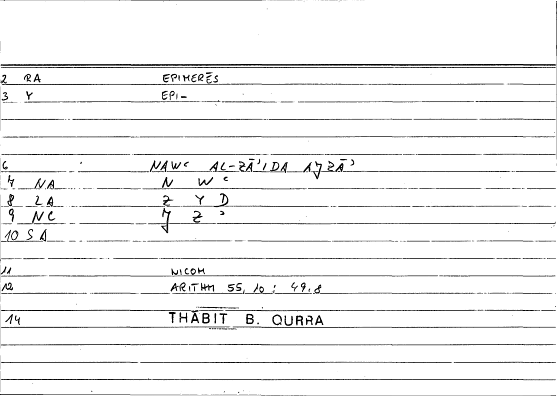 2 RA EPIMERĒS
3 Y EPI-
6 NAWʿ AL-ZĀʾIDA AǰZĀʾ
7 NA N W ʿ
8 ZA Z Y D
9 NC ǰ Z ʾ
10 SA
11 NICOM
12 ARITHM 55, 10 : 49.8
14 THĀBIT B. QURRA